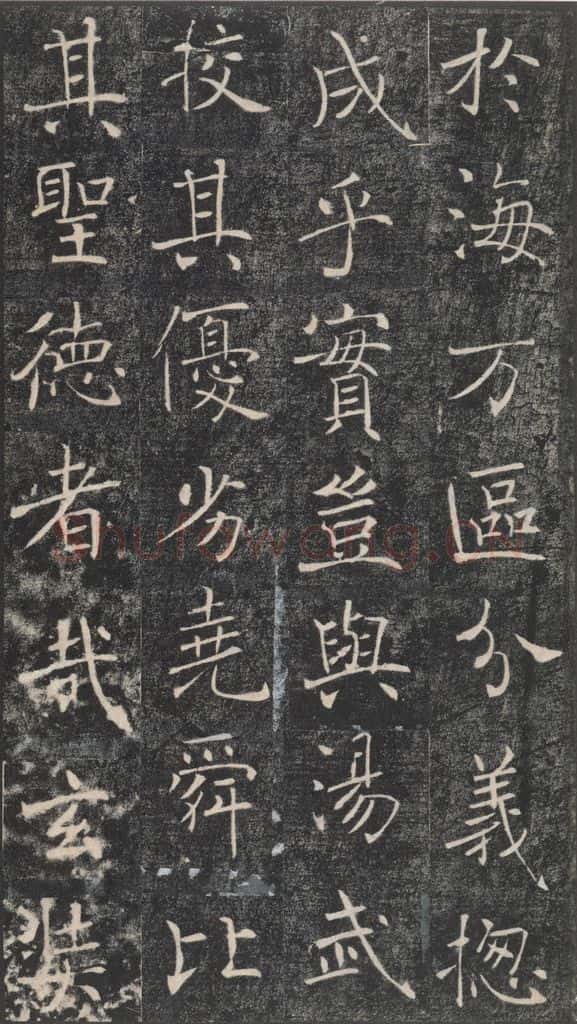 於海万區分義揔
成乎實豈與湯武
校其優劣堯舜比
其聖德者哉玄奘
Shufawang.CN